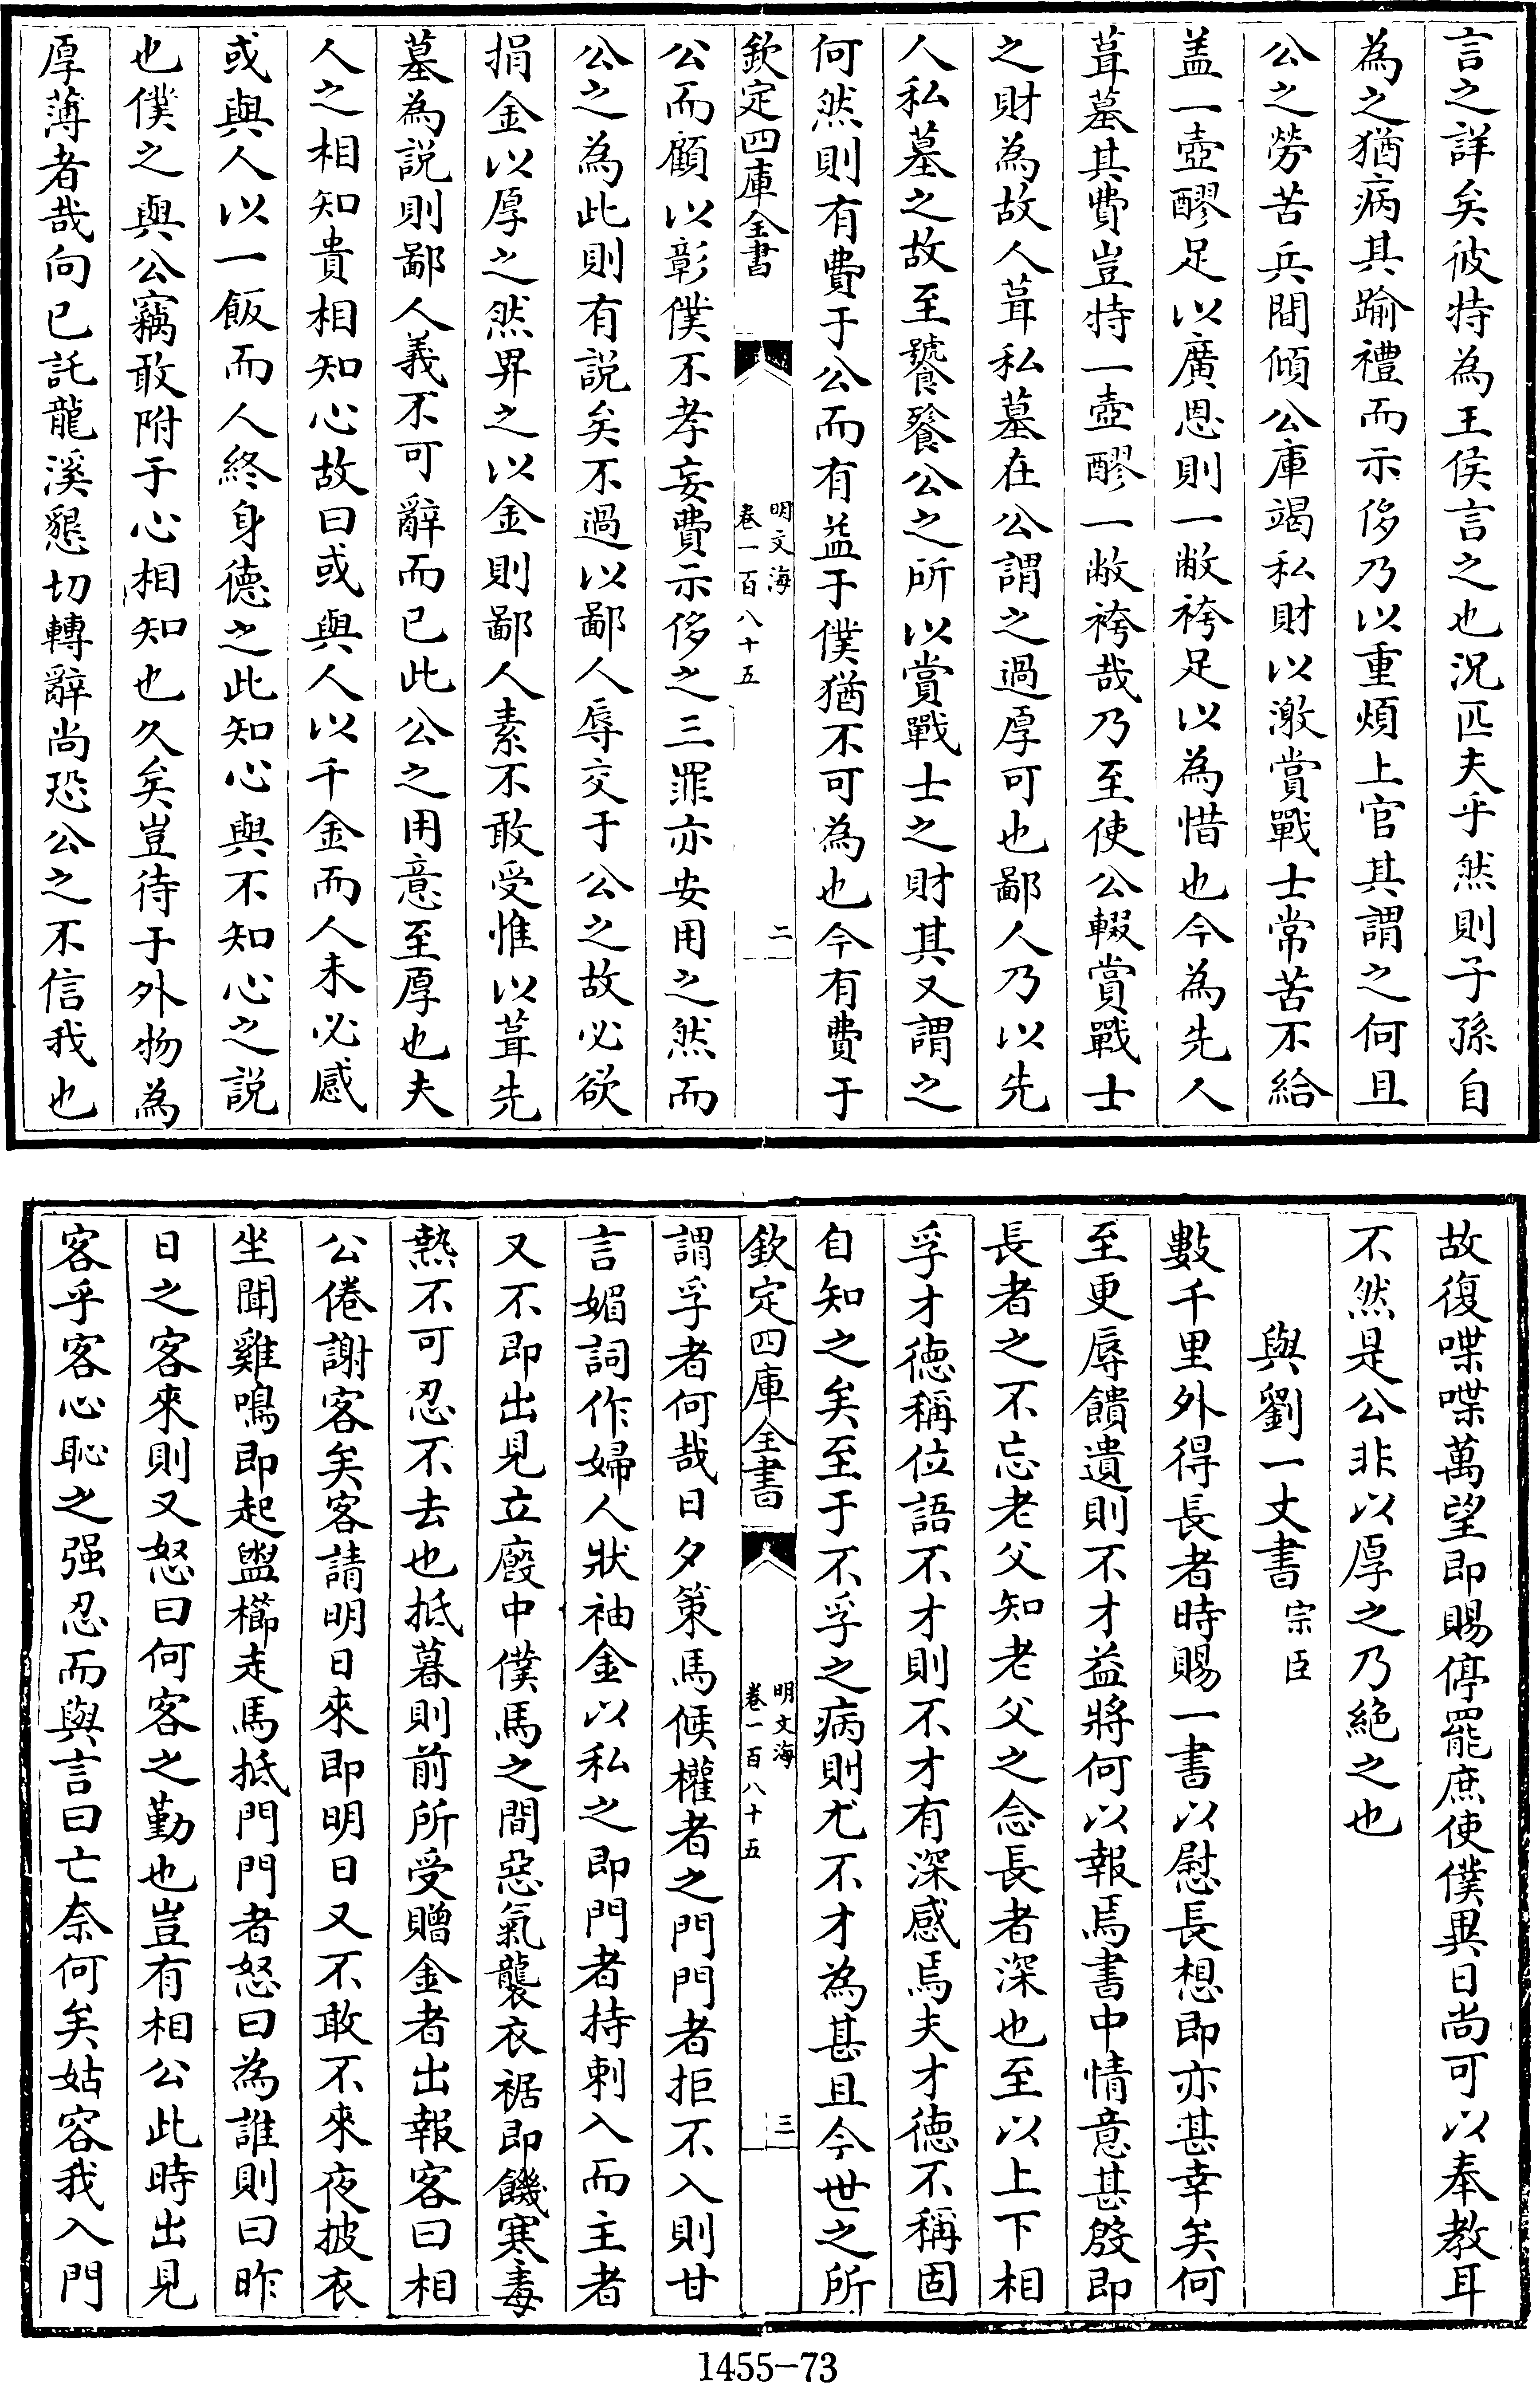 言之詳矣彼特為王侯言之也況匹夫乎然則子孫自
為之猶病其踰禮而示侈乃以重煩上官其謂之何且
公之勞苦兵間傾公庫竭私財以激賞戰士常苦不給
盖一壺醪足以廣恩則一敝袴足以為惜也今為先人
葺墓其費豈特一壺醪一敝袴哉乃至使公輟賞戰士
之財為故人葺私墓在公謂之過厚可也鄙人乃以先
人私墓之故至饕餮公之所以賞戰士之財其又謂之
何然則有費于公而有益于僕猶不可為也今有費于
欽定四庫全書
明文海
卷一百八十五
二
公而顧以彰僕不孝妄費示侈之三罪亦安用之然而
公之為此則有説矣不過以鄙人辱交于公之故必欲
捐金以厚之然畀之以金則鄙人素不敢受惟以葺先
墓為説則鄙人義不可辭而已此公之用意至厚也夫
人之相知貴相知心故曰或與人以千金而人未必感
或與人以一飯而人終身德之此知心與不知心之説
也僕之與公竊敢附于心相知也久矣豈待于外物為
厚薄者哉向已託龍溪懇切轉辭尚恐公之不信我也
故復喋喋萬望即賜停罷庶使僕異日尚可以奉教耳
不然是公非以厚之乃絶之也
與劉一丈書 宗臣
數千里外得長者時賜一書以慰長想即亦甚幸矣何
至更辱饋遺則不才益將何以報焉書中情意甚殷即
長者之不忘老父知老父之念長者深也至以上下相
孚才徳稱位語不才則不才有深感焉夫才徳不稱固
自知之矣至于不孚之病則尤不才為甚且今世之所
欽定四庫全書
明文海
卷一百八十五
三
謂孚者何哉日夕策馬候權者之門門者拒不入則甘
言媚詞作婦人狀袖金以私之即門者持刺入而主者
又不即出見立廐中僕馬之間惡氣襲衣裾即饑寒毒
熱不可忍不去也抵暮則前所受贈金者出報客曰相
公倦謝客矣客請明日來即明日又不敢不來夜披衣
坐聞雞鳴即起盥櫛走馬抵門門者怒曰為誰則曰昨
日之客來則又怒曰何客之勤也豈有相公此時出見
客乎客心恥之强忍而與言曰亡奈何矣姑容我入門
1455-73